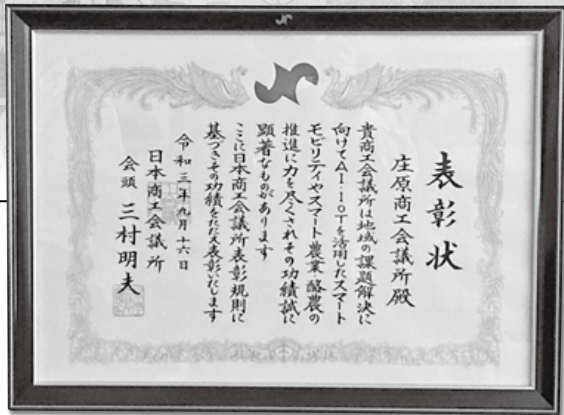 表彰状
庄原商工会議所殿
貴商工会議所は地域の課題解決に
向けてAI・IoTを活用したスマート
モビリティやスマート農業・酪農の
推進に力を尽くされその功績誠に
顕著なものがあります
ここに日本商工会議所表彰規則に
基づきその功績をたたえ表彰いたします
令和三年九月十六日
日本商工会議所
会頭 三村明夫